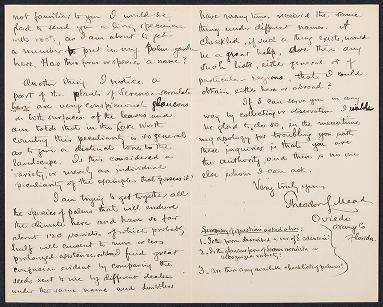 not familiar to you I would be
glad to send you a living specimen
with root, as I am about to get
a number to put in my Palm garden
here. Has this form or species a name?
Another thing I notice, a
part of the plants of Serenoa serrulata
here are very conspicuously glaucous
on both surfaces of the leaves and
am told that in the Lake Worth
country this peculiarity is so general
as to give a distinct tone to the
landscape. Is this considered a
variety, or merely an individual
peculiarity of the examples that possess it?
I am trying to get together all
the species of palms that will endure
the climate here and have so far
about 120 varieties of which probably
half will consent to more or less
prolonged existence without find great
confusion evident by comparing the
seeds sent to me by different dealers
under the same name and doubtless
have many times received the same
thing under different names. If
a checklist, if such a thing exists, would
be a great help, are there any
such lists, either general or of
particular regions, that I could
obtain either here or abroad?
If I can serve you in any
way by collecting or observation I will
be glad to do so, in the meantime
my apology for troubling you with
these inquiries is that you are
the authority, and there is no one
else whom I can ask.
Very truly yours,
Theodore L. Mead.
Oviedo
Orange Co
Florida.
Summary of questions asked above:
1. Is the form described a var. of S.
2. Is the glaucous form of Serenoa serrulata a
recognized variety?
3. Are there any available checklists of palms?